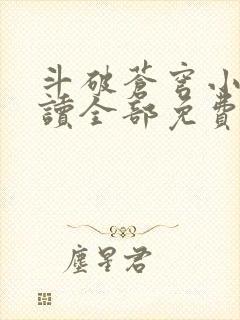 斗破蒼穹小
讀全部免費
塵星君